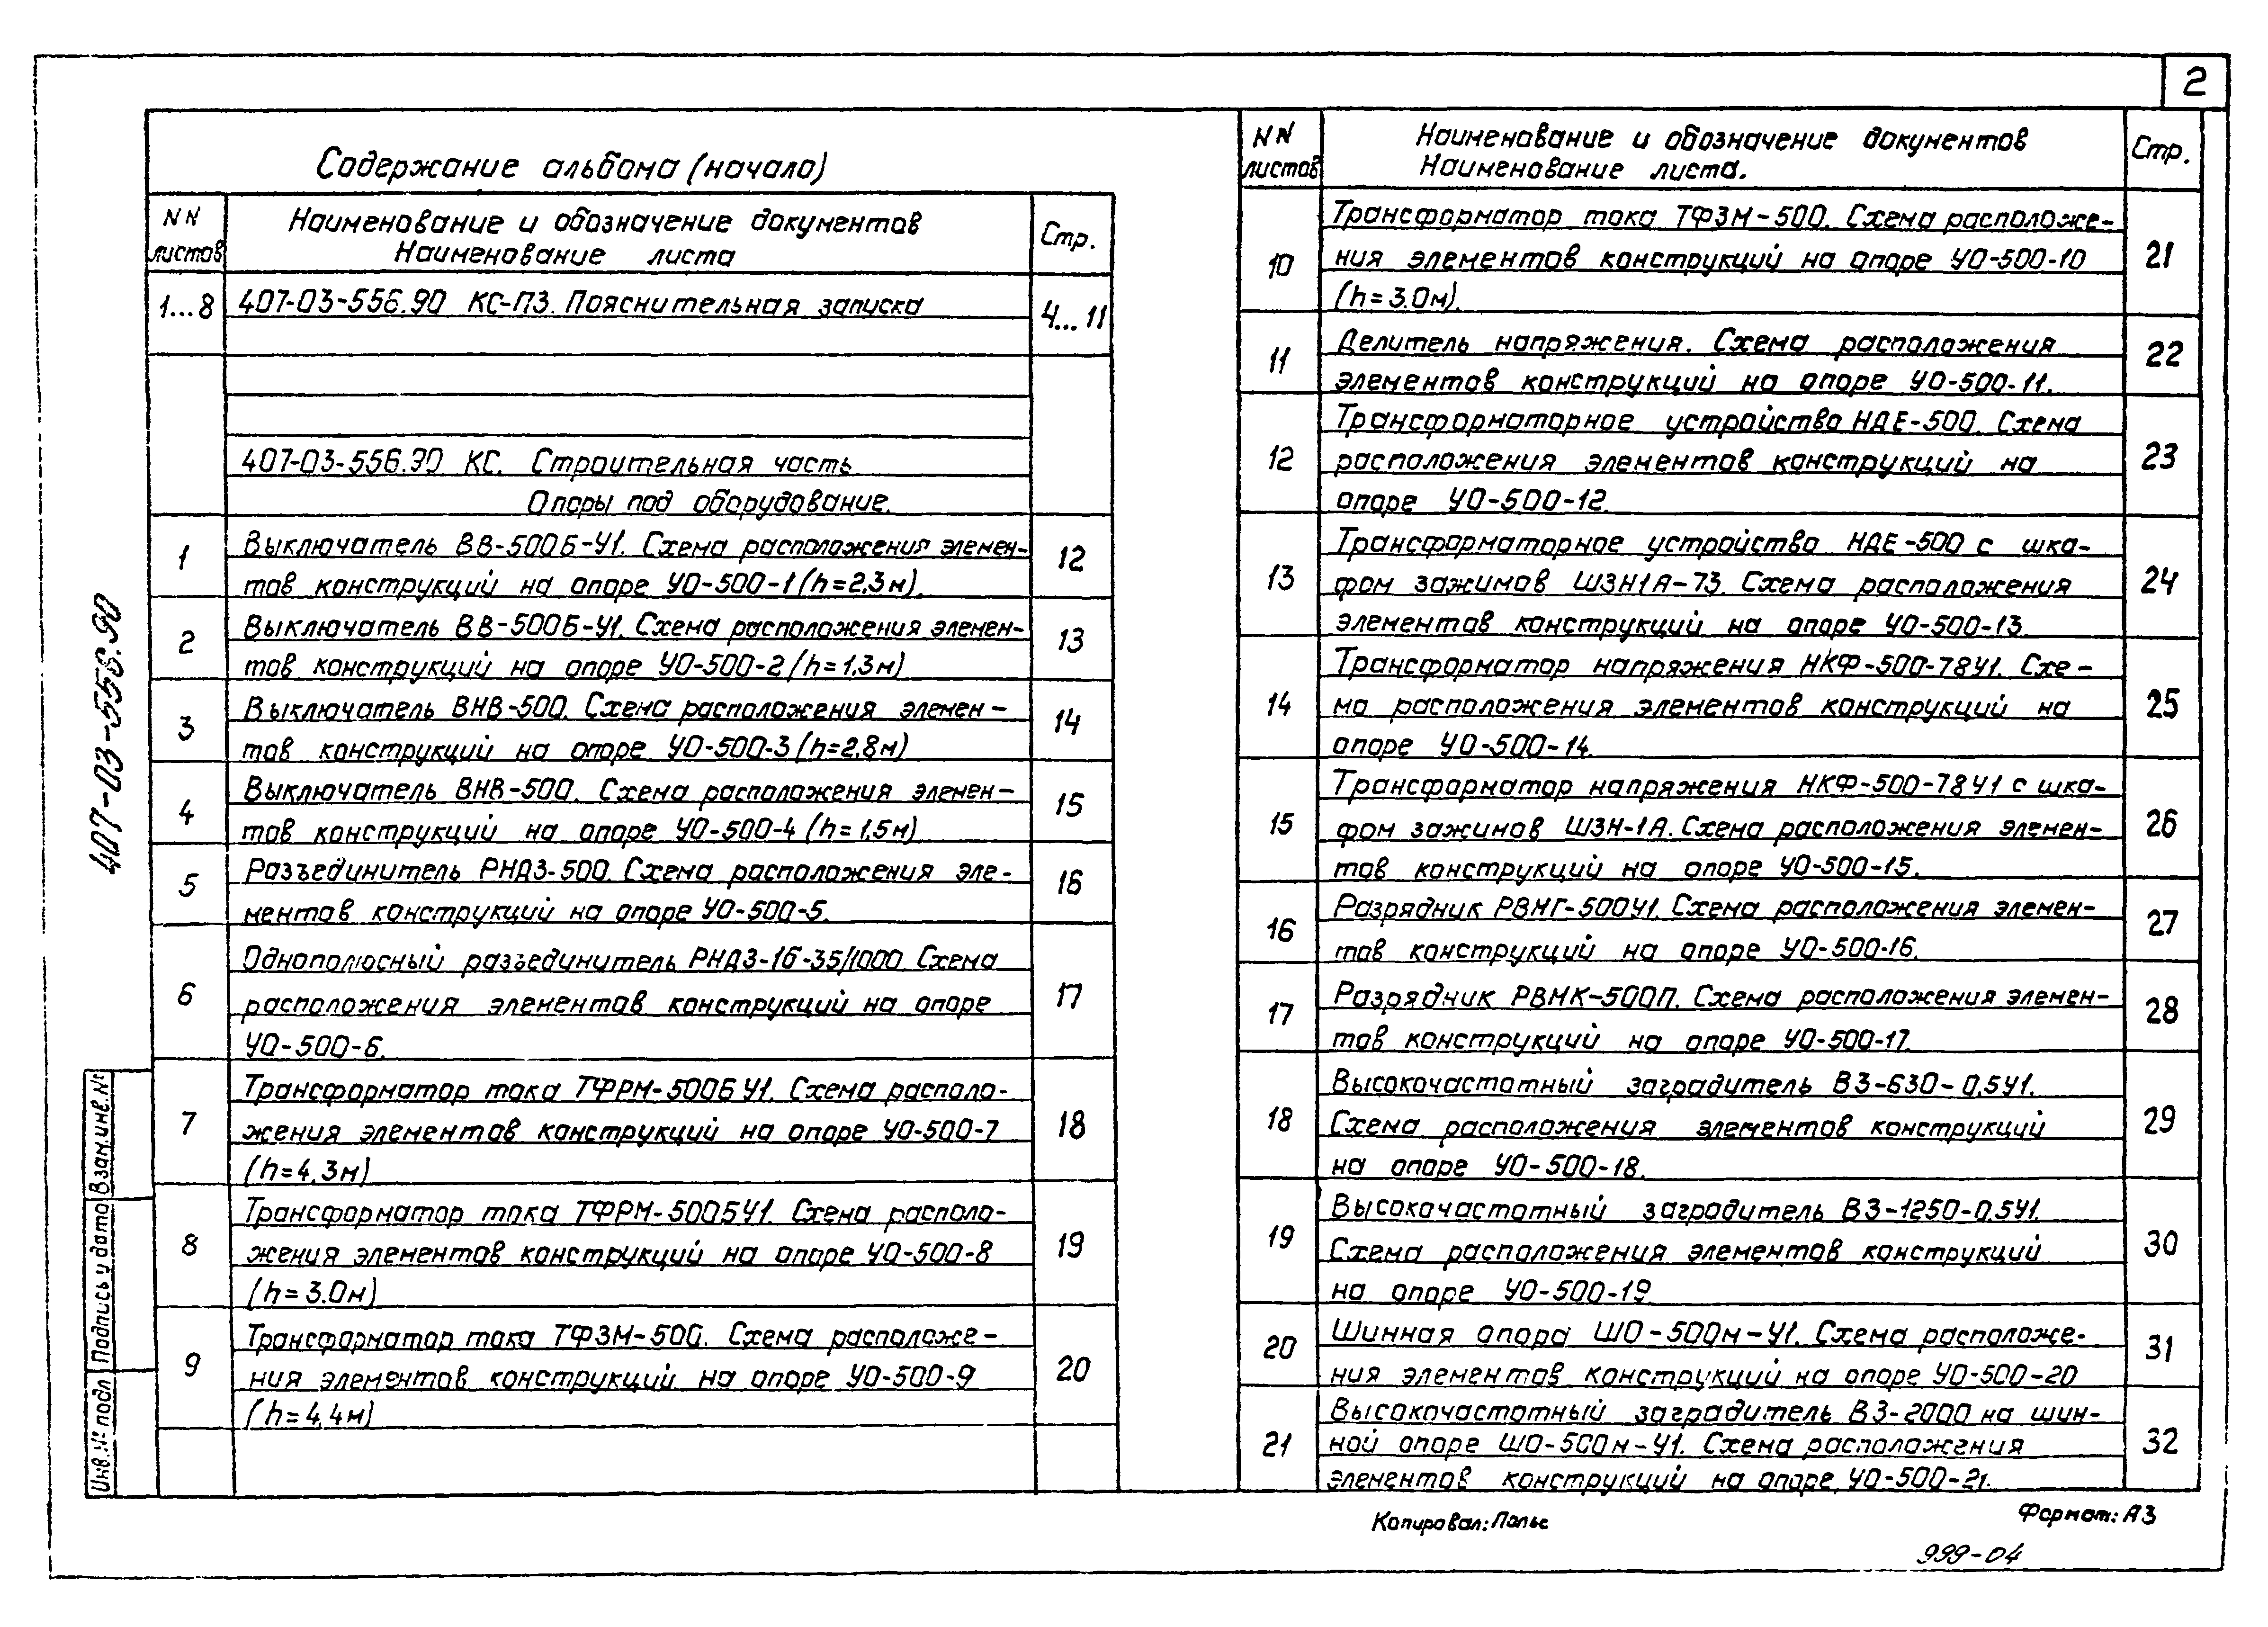 2
Содержание альбома (начало)
NN листов
Наименование и обозначение документов
Наименование листа
Стр.
1...8
407-03-556.90 КС-ПЗ. Пояснительная записка
4...11
407-03-556.90 КС. Строительная часть
Опоры под оборудование.
1
Выключатель ВВ-500Б-У1. Схема расположения элемен-
тов конструкций на опоре УО-500-1 (h=2,3м).
12
2
Выключатель ВВ-500Б-У1. Схема расположения элемен-
тов конструкций на опоре УО-500-2 (h=1,3м)
13
3
Выключатель ВНВ-500. Схема расположения элемен-
тов конструкций на опоре УО-500-3 (h=2,8м)
14
4
Выключатель ВНВ-500. Схема расположения элемен-
тов конструкций на опоре УО-500-4 (h=1,5м)
15
5
Разъединитель РНДЗ-500. Схема расположения эле-
ментов конструкций на опоре УО-500-5.
16
6
Однополюсный разъединитель РНДЗ-1б-35/1000 Схема
расположения элементов конструкций на опоре
УО-500-6.
17
7
Трансформатор тока ТФРМ-500Б У1. Схема располо-
жения элементов конструкций на опоре УО-500-7
(h=4,3м)
18
8
Трансформатор тока ТФРМ-500БУ1. Схема располо-
жения элементов конструкций на опоре УО-500-8
(h=3.0м)
19
9
Трансформатор тока ТФЗМ-500. Схема расположе-
ния элементов конструкций на опоре УО-500-9
(h=4,4м)
20
NN листов
Наименование и обозначение документов
Наименование листа.
Стр.
10
Трансформатор тока ТФЗМ-500. Схема расположе-
ния элементов конструкций на опоре УО-500-10
(h=3.0м).
21
11
Делитель напряжения. Схема расположения
элементов конструкций на опоре УО-500-11.
22
12
Трансформаторное устройство НДЕ-500. Схема
расположения элементов конструкций на
опоре УО-500-12.
23
13
Трансформаторное устройство НДЕ-500 с шка-
фом зажимов ШЗН1А-73. Схема расположения
элементов конструкций на опоре УО-500-13.
24
14
Трансформатор напряжения НКФ-500-78У1. Схе-
ма расположения элементов конструкций на
опоре УО-500-14.
25
15
Трансформатор напряжения НКФ-500-78У1 с шка-
фом зажимов ШЗН-1А. Схема расположения элемен-
тов конструкций на опоре УО-500-15.
26
16
Разрядник РВМГ-500У1. Схема расположения элемен-
тов конструкций на опоре УО-500-16.
27
17
Разрядник РВМК-500П. Схема расположения элемен-
тов конструкций на опоре УО-500-17.
28
18
Высокочастотный заградитель ВЗ-630-0,5У1.
Схема расположения элементов конструкций
на опоре УО-500-18.
29
19
Высокочастотный заградитель ВЗ-1250-0,5У1.
Схема расположения элементов конструкций
на опоре УО-500-19
30
20
Шинная опора ШО-500м-У1. Схема расположе-
ния элементов конструкций на опоре УО-500-20
31
21
Высокочастотный заградитель ВЗ-2000 на шин-
ной опоре ШО-500м-У1. Схема расположения
элементов конструкций на опоре УО-500-21.
32
407-03-556.90
Взам.инв.№
Подпись и дата
Инв.№ подл
Копировал: Польс
Формат: А3
999-04